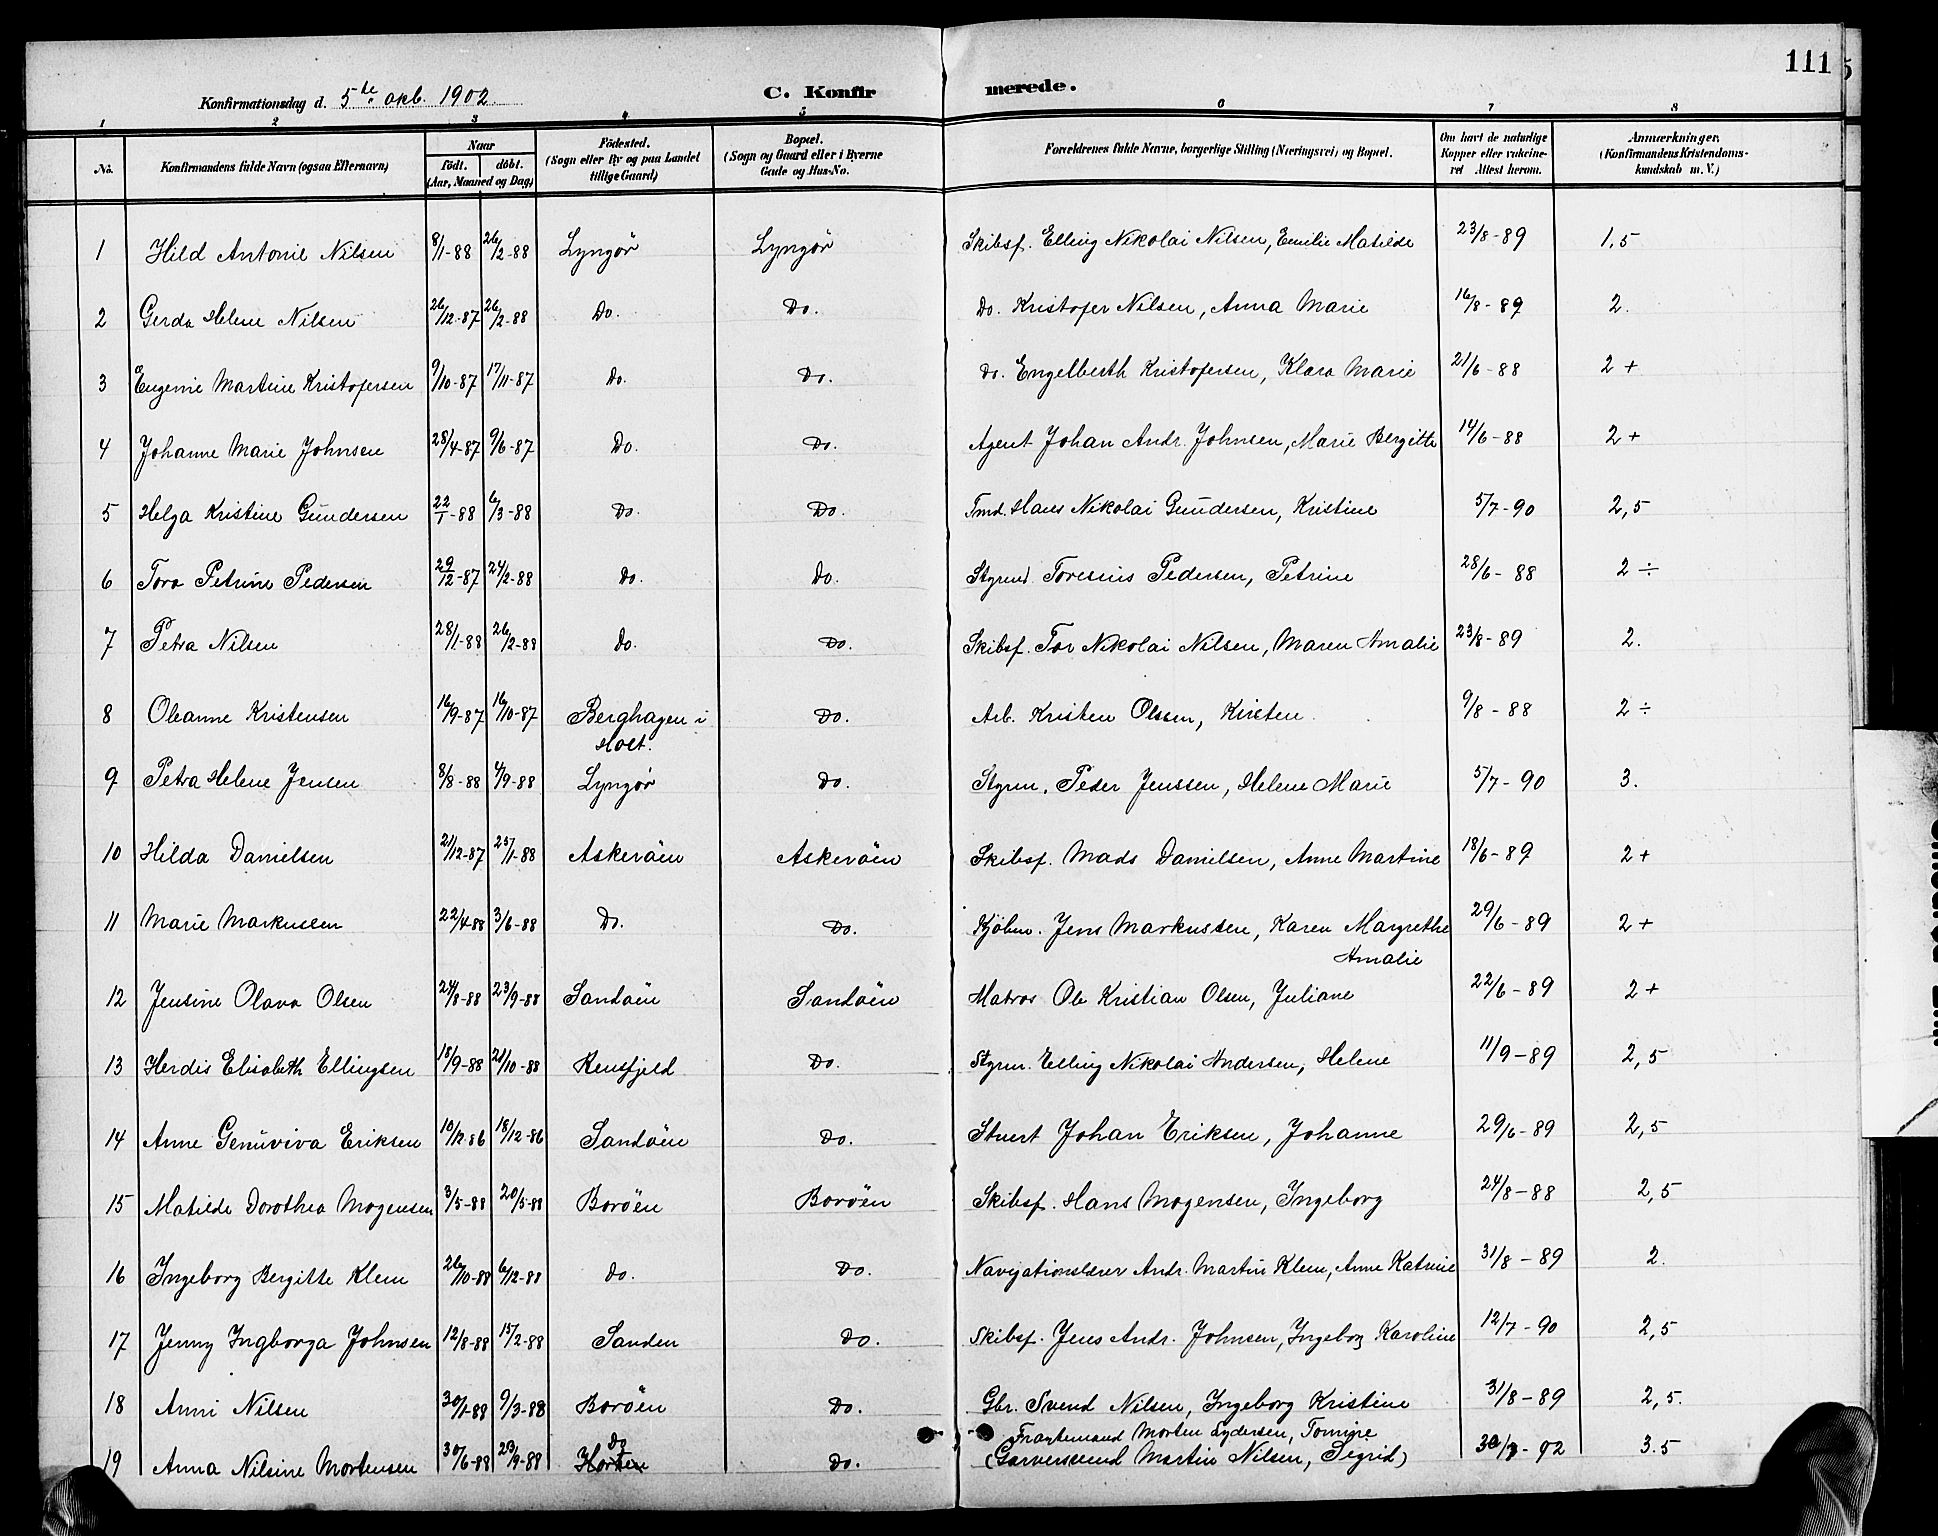 111
Konfirmationsdag d. 5te okb. 1902. C. Konfirmerede.
1 2 3 4 5 6 7 8
No. Konfirmandens fulde Navn (ogsaa Efternavn) Naar født. døbt. (Aar, Maaned og Dag) Fødested. (Sogn eller By og paa Landet tillige Gaard) Bopæl. (Sogn og Gaard eller i Byerne Gade og Hus-No. Forældrenes fulde Navne, borgerlige Stilling (Næringsvei) og Bopæl. Om havt de naturlige Kopper eller vakcineret Attest herom. Anmærkninger, (Konfirmandens Kristendomskundskab m. V.)
1 Hild Antonie Nilsen 8/1-88 26/2-88 Lyngør Lyngør Skibsf. Elling Nikolai Nilsen, Emilie Matilde 23/8-89 1,5
2 Gerda Helene Nilsen 26/12-87 26/2-88 Do. Do. Do. Kristofer Nilsen, Anna Marie 16/8-89 2.
3 Eugenie Martine Kristofersen 9/10-87 17/11-87 Do. Do. Do. Engelberth Kristofersen, Klara Marie 21/6-88 2+
4 Johanne Marie Johnsen 28/4-87 9/6-87 Do. Do. Agent Johan Andr. Johnsen, Marie Bergitte 14/6-88 2+
5 Helga Kristine Gundersen 22/1-88 6/3-88 Do. Do. Tmd. Hans Nikolai Gundersen, Kristine 5/7-90 2,5
6 Tora Petrine Pedersen 29/12-87 24/2-88 Do. Do. Styrmd. Toresius Pedersen, Petrine 28/6-88 2÷
7 Petra Nilsen 28/1-88 26/2-88 Do. Do. Skibsf. Tor Nikolai Nilsen, Maren Amalie 23/8-89 2.
8 Oleanne Kristensen 16/9-87 16/10-87 Berghagen i Holt. Do. Arb. Kristen Olssen, Kirsten 9/8-88 2÷
9 Petra Helene Jensen 8/8-88 4/9-88 Lyngør Do. Styrm. Peder Jenssen, Helene Marie 5/7-90 3.
10 Hilda Danielsen 21/12-87 25/1-88 Askerøen Askerøen Skibsf. Mads Danielsen, Anne Martine 18/6-89 2+
11 Marie Markussen 22/4-88 3/6-88 Do. Do. Kjøbm. Jens Markussen, Karen Margrethe Amalie 29/6-89 2+
12 Jensine Olava Olsen 24/8-88 23/9-88 Sandøen Sandøen Matros Ole Kristian Olsen, Juliane 22/6-89 2+
13 Herdis Elisabeth Ellingsen 18/9-88 21/10-88 Rensfjeld Do. Styrm. Elling Nikolai Andersen, Helene 11/9-89 2,5
14 Anne Genuviva Eriksen 10/12-86 18/12-86 Sandøen Do. Stuert Johan Eriksen, Johanne 29/6-89 2,5
15 Matilde Dorothea Mogensen 3/5-88 20/5-88 Borøen Borøen Skibsf. Hans Mogensen, Ingeborg 24/8-88 2,5
16 Ingeborg Bergitte Klem 26/10-88 6/12-88 Do. Do. Navigationslærer Andr. Martin Klem, Anne Katrine 31/8-89 2.
17 Jenny Ingborga Johnsen 12/8-88 15/2-88 Sanden Do. Skibsf. Jens Andr. Johnsen, Ingeborg Karoline 12/7-90 2,5
18 Anni Nilsen 30/1-88 9/3-88 Borøen Do. Gbr. Svend Nilsen, Ingeborg Kristine 31/8-89 2,5.
19 Anna Nilsine Mortensen 30/6-88 23/9-88 Do Horten Do. Fragtemand Morten Lydersen, Tomine (Garversvend Martin Nilsen, Sigrid) -92 3.5